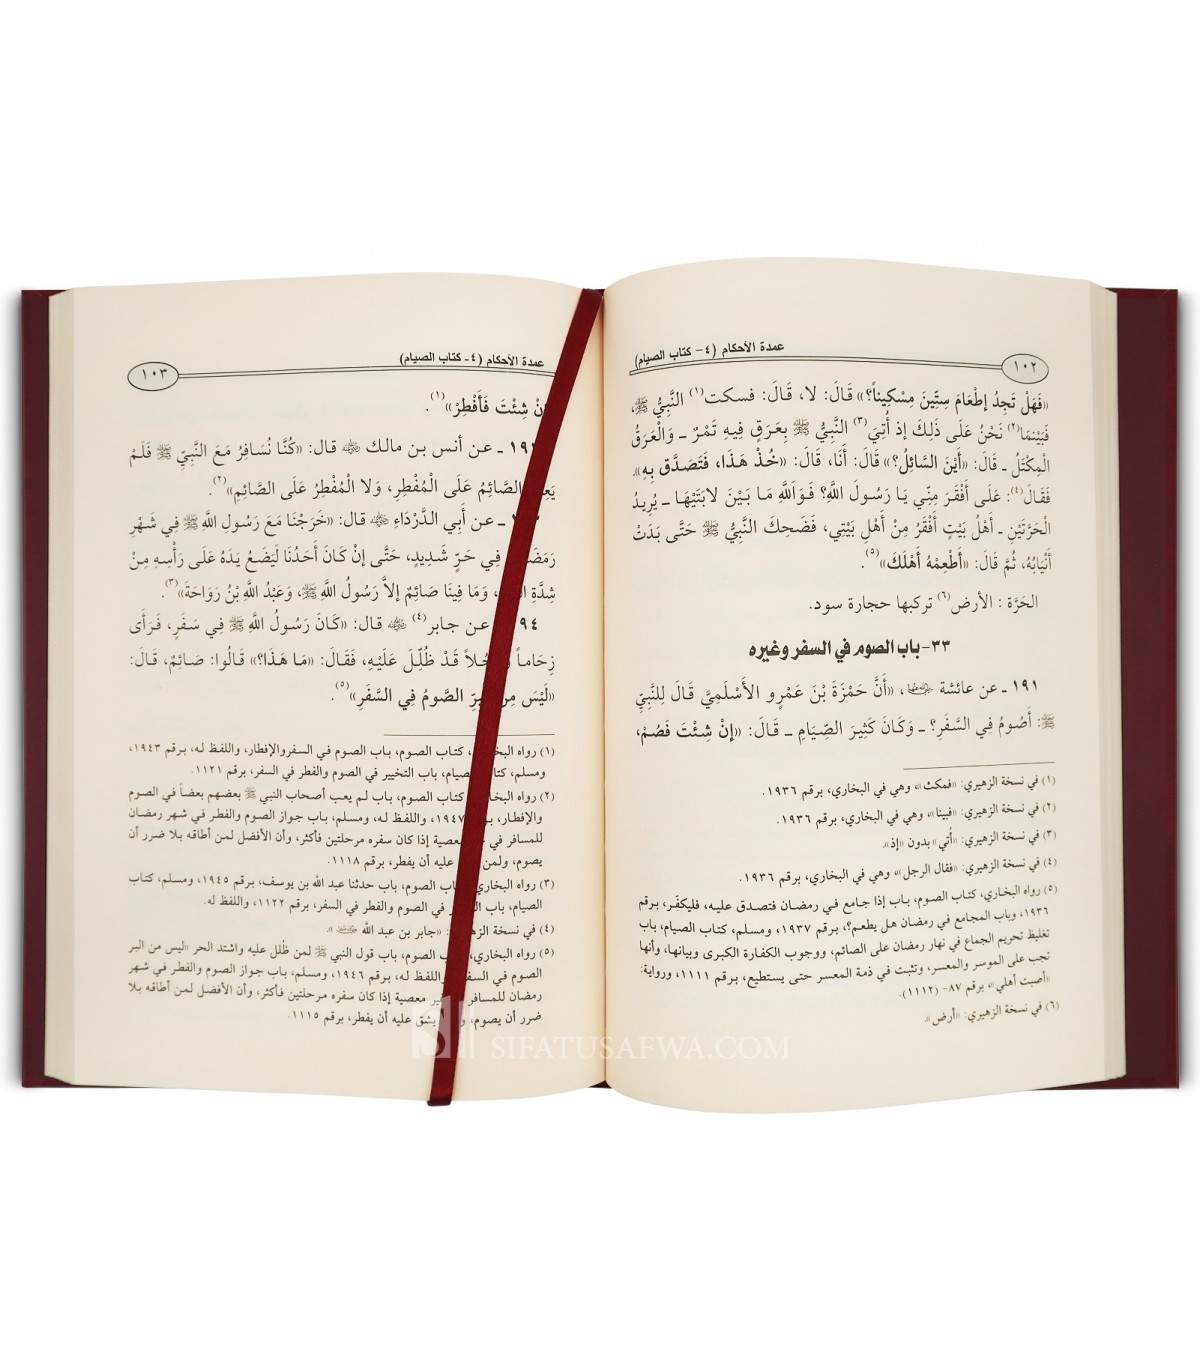 ١٠٢
عمدة الأحكام (٤- كتاب الصيام)
«فَهَلْ تَجِدُ إِطْعَامَ سِتِّينَ مِسْكِيناً؟» قَالَ: لا، قَالَ: فسكت(١) النَّبِيُّ ﷺ،
فَبَيْنَمَا(٢) نَحْنُ عَلَى ذَلِكَ إذ أُتِيَ(٣) النَّبِيُّ ﷺ بِعَرَقٍ فِيهِ تَمْرٌ ـ وَالْعَرَقُ
الْمِكْتَلُ ـ قَالَ: «أَيْنَ السَّائِلُ؟» قَالَ: أَنَا، قَالَ: «خُذْ هَذَا، فَتَصَدَّق بِهِ».
فَقَالَ(٤): عَلَى أَفْقَرَ مِنِّي يَا رَسُولَ اللَّهِ؟ فَوَاللَّهِ مَا بَيْنَ لابَتَيْهَا ـ يُرِيدُ
الْحَرَّتَيْنِ ـ أَهْلُ بَيْتٍ أَفْقَرُ مِنْ أَهْلِ بَيْتِي، فَضَحِكَ النَّبِيُّ ﷺ حَتَّى بَدَتْ
أَنْيَابُهُ، ثُمَّ قَالَ: «أَطْعِمْهُ أَهْلَكَ»(٥).
الحَرَّة : الأرض(٦) تركبها حجارة سود.
٣٣- باب الصوم في السفر وغيره
١٩١ ـ عن عائشة رضي الله عنها، «أَنَّ حَمْزَةَ بْنَ عَمْرٍو الأَسْلَمِيَّ قَالَ لِلنَّبِيِّ
ﷺ: أَصُومُ فِي السَّفَرِ؟ ـ وَكَانَ كَثِيرَ الصِّيَامِ ـ قَالَ: «إِنْ شِئْتَ فَصُمْ،
(١) في نسخة الزهيري: «فمكث»، وهي في البخاري، برقم ١٩٣٦.
(٢) في نسخة الزهيري: «فبينا»، وهي في البخاري، برقم ١٩٣٦.
(٣) في نسخة الزهيري: «أُتي» بدون «إذ».
(٤) في نسخة الزهيري: «فقال الرجل»، وهي في البخاري، برقم ١٩٣٦.
(٥) رواه البخاري، كتاب الصوم، باب إذا جامع في رمضان فتصدق عليه، فليكفّر، برقم
١٩٣٦، وباب المجامع في رمضان هل يطعم؟، برقم ١٩٣٧، ومسلم، كتاب الصيام، باب
تغليظ تحريم الجماع في نهار رمضان على الصائم، ووجوب الكفارة الكبرى وبيانها، وأنها
تجب على الموسر والمعسر، وتثبت في ذمة المعسر حتى يستطيع، برقم ١١١١، ورواية:
«أصبت أهلي»، برقم ٨٧- (١١١٢).
(٦) في نسخة الزهيري: «أرض».
عمدة الأحكام (٤- كتاب الصيام)
١٠٣
شِئْتَ فَأَفْطِرْ»(١).
ـ عن أنس بن مالك رضي الله عنه قال: «كُنَّا نُسَافِرُ مَعَ النَّبِيِّ ﷺ فَلَمْ
الصَّائِمُ عَلَى الْمُفْطِرِ، وَلا الْمُفْطِرُ عَلَى الصَّائِمِ»(٢).
ـ عن أَبِي الدَّرْدَاءِ رضي الله عنه قال: «خَرَجْنَا مَعَ رَسُولِ اللَّهِ ﷺ فِي شَهْرِ
فِي حَرٍّ شَدِيدٍ، حَتَّى إنْ كَانَ أَحَدُنَا لَيَضَعُ يَدَهُ عَلَى رَأْسِهِ مِنْ
شِدَّةِ وَمَا فِينَا صَائِمٌ إلاَّ رَسُولُ اللَّهِ ﷺ، وَعَبْدُ اللَّهِ بْنُ رَوَاحَةَ»(٣).
عن جابر(٤) رضي الله عنه قال: «كَانَ رَسُولُ اللَّهِ ﷺ فِي سَفَرٍ، فَرَأَى
زِحَاماً قَدْ ظُلِّلَ عَلَيْهِ، فَقَالَ: «مَا هَذَا؟» قَالُوا: صَائِمٌ، قَالَ:
«لَيْسَ الصَّومُ فِي السَّفَرِ»(٥).
(١) رواه كتاب الصوم، باب الصوم في السفر والإفطار، واللفظ له، برقم ١٩٤٣،
ومسلم، باب التخيير في الصوم والفطر في السفر، برقم ١١٢١.
(٢) رواه كتاب الصوم، باب لم يعب أصحاب النبي ﷺ بعضهم بعضاً في الصوم
والإفطار، ١٩٤٧، واللفظ له، ومسلم، باب جواز الصوم والفطر في شهر رمضان
للمسافر في معصية إذا كان سفره مرحلتين فأكثر، وأن الأفضل لمن أطاقه بلا ضرر أن
يصوم، عليه أن يفطر، برقم ١١١٨.
(٣) رواه البخاري الصوم، باب حدثنا عبد الله بن يوسف، برقم ١٩٤٥، ومسلم، كتاب
الصيام، باب في الصوم والفطر في السفر، برقم ١١٢٢، واللفظ له.
(٤) في نسخة «جابر بن عبد الله رضي الله عنهما».
(٥) رواه الصوم، باب قول النبي ﷺ لمن ظُلل عليه واشتد الحر «ليس من البر
الصوم في واللفظ له، برقم ١٩٤٦، ومسلم، باب جواز الصوم والفطر في شهر
رمضان للمسافر معصية إذا كان سفره مرحلتين فأكثر، وأن الأفضل لمن أطاقه بلا
ضرر أن يصوم، يشق عليه أن يفطر، برقم ١١١٥.
SIFATUSAFWA.COM